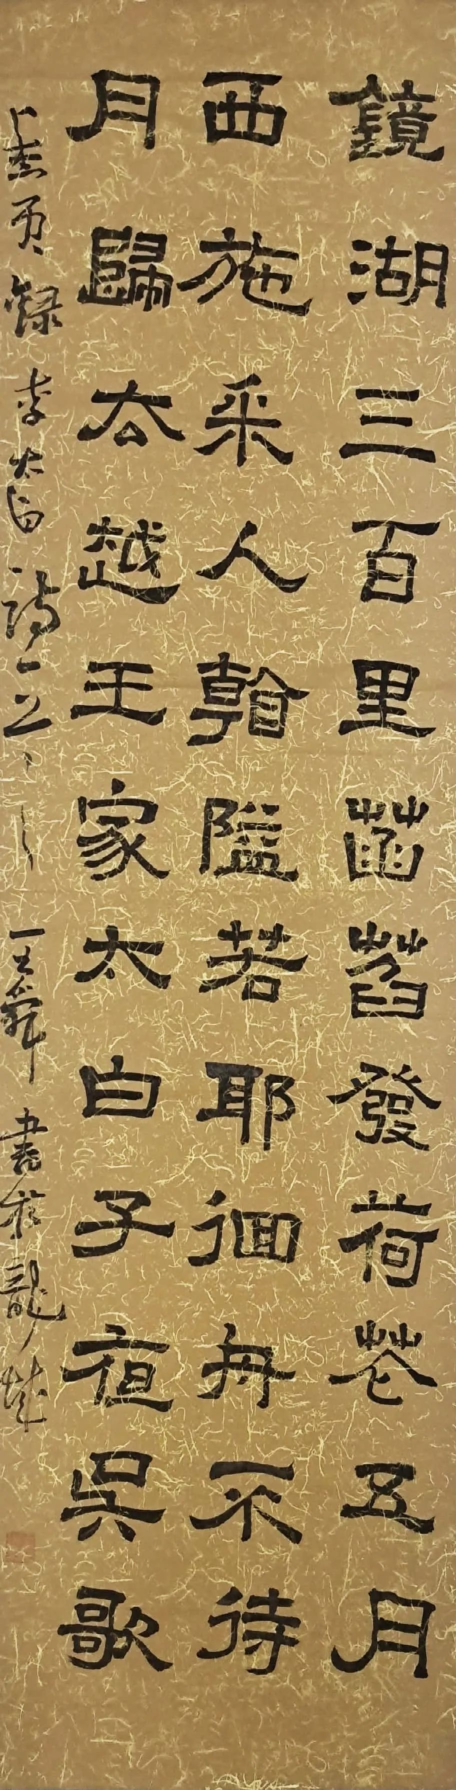 鏡湖三百里菡萏發荷花五月
西施采人看隘若耶徊舟不待
月歸去越王家太白子夜吳歌
錄李太白詩一 王舜書於龍城